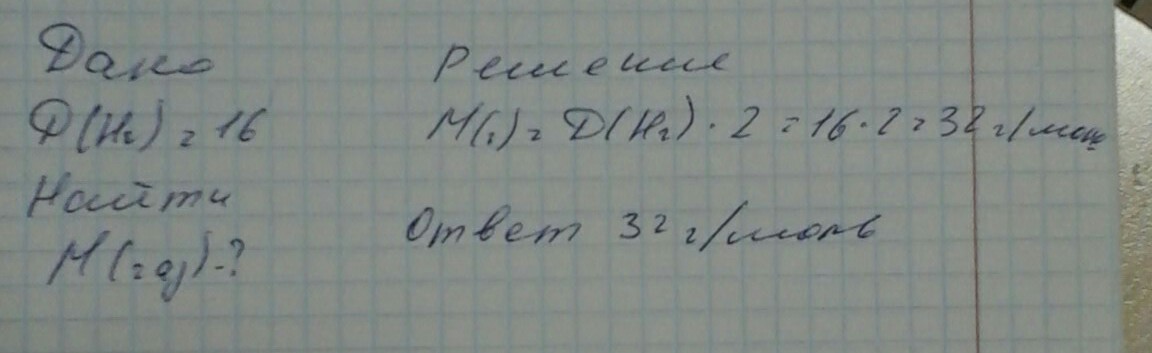 Дано
D(H₂) = 16
Найти
M(газ)-?
Решение
M(г) = D(H₂) · 2 = 16 · 2 = 32 г/моль
Ответ 32 г/моль